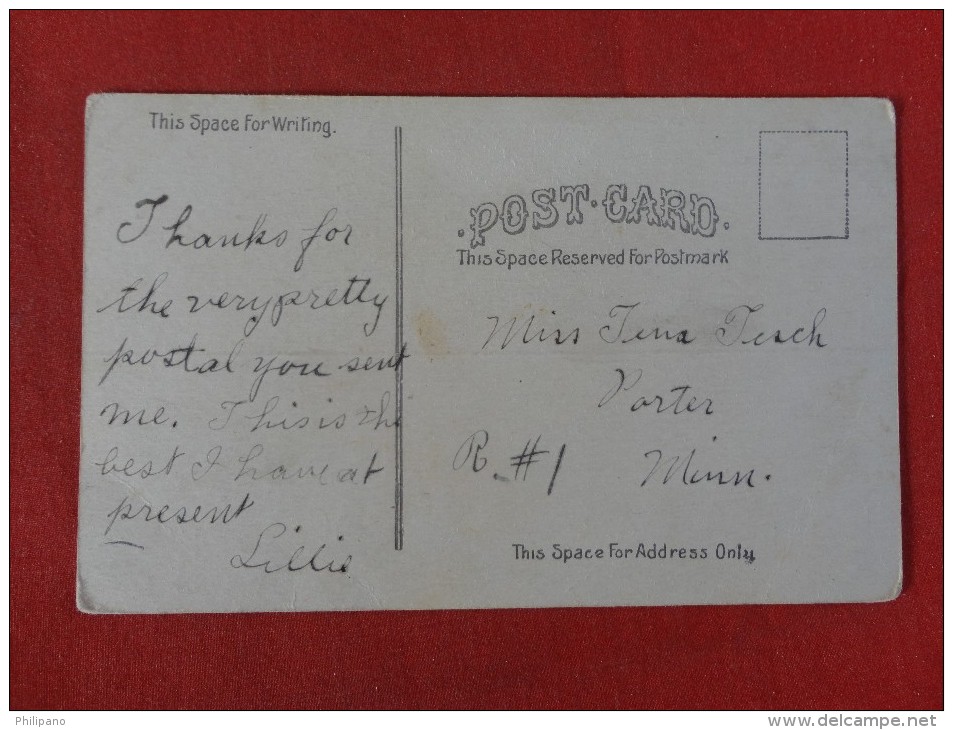 This Space For Writing.
Thanks for
the very pretty
postal you sent
me. This is the
best I have at
present
Lillie
POST CARD.
This Space Reserved For Postmark
Miss Tena Tesch
Porter
R. #1 Minn.
This Space For Address Only
Philipano
www.delcampe.net